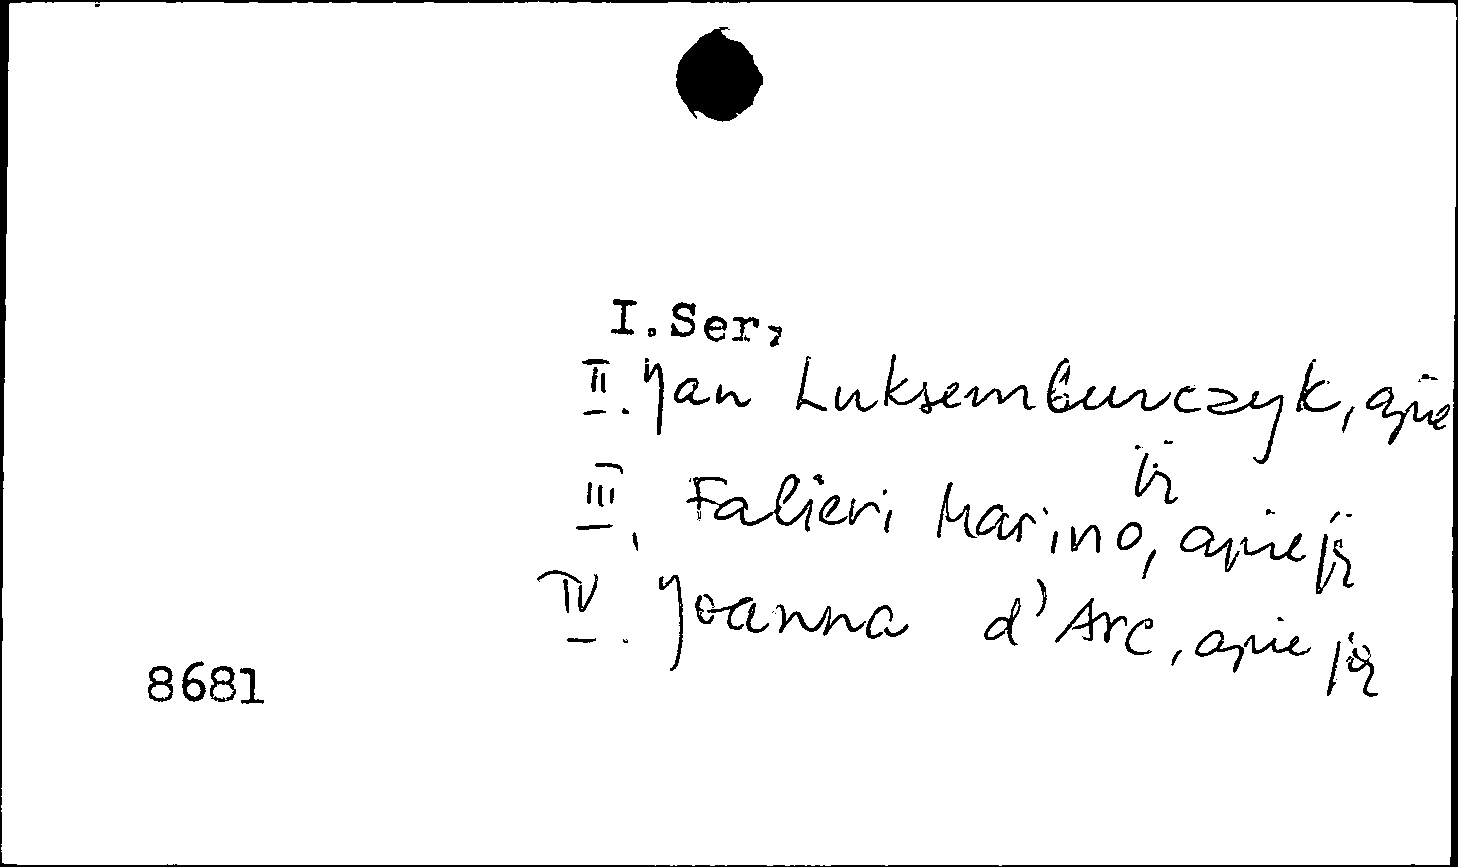 I.Ser,
II. Jan Luksemburczyk, apie
jį
III. Falieri Marino, apie jį
IV. Joanna d'Arc, apie ją
8681